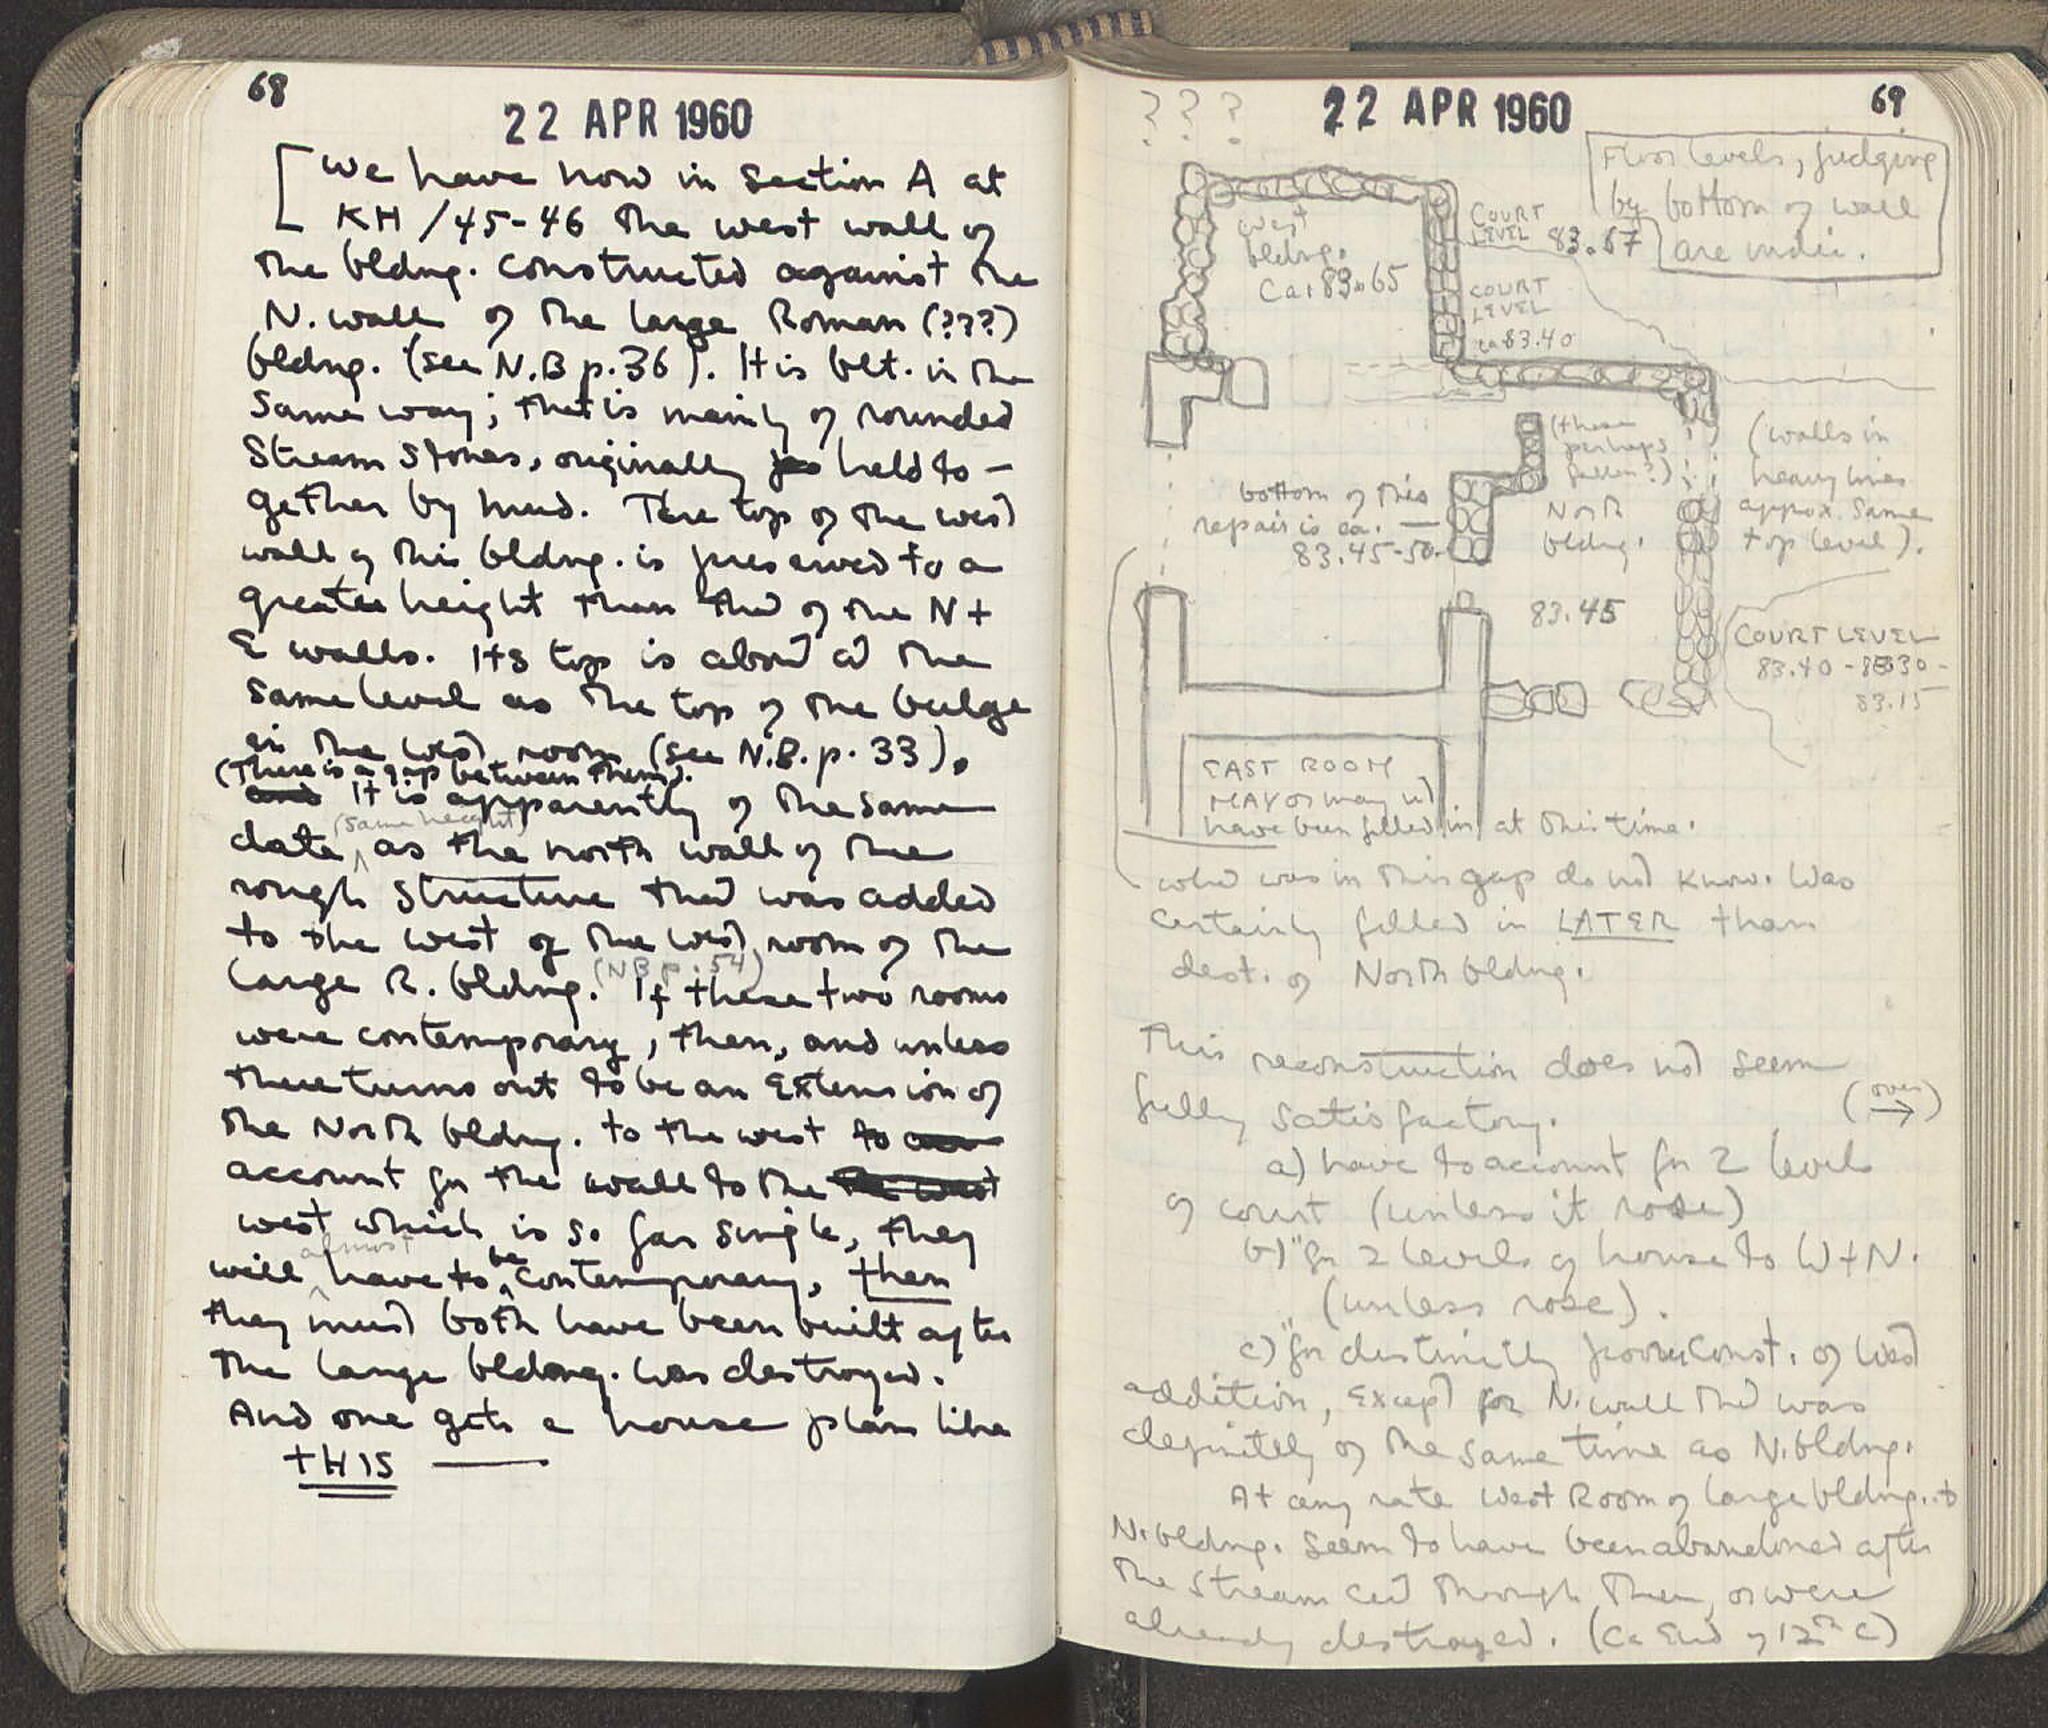 68
22 APR 1960
[We have now in Section A at
KH/45-46 the west wall of
the bldng. constructed against the
N. wall of the large Roman (???)
bldng. (see N.B p. 36). It is blt. in the
same way; that is mainly of rounded
stream stones, originally held to-
gether by mud. The top of the west
wall of this bldng. is preserved to a
greater height than that of the N +
E walls. Its top is about at the
same level as the top of the bulge
in the west room (see N.B. p. 33).
(There is a gap between them).
and It is apparently of the same
(same height)
date, as the north wall of the
rough structure that was added
to the west of the west room of the
(NB p. 54)
large R. bldng. If these two rooms
were contemporary, then, and unless
there turns out to be an extension of
the North bldng. to the west to
account for the wall to the the west
west which is so far single, they
will almost have to be contemporary, then
they must both have been built after
the large bldng. was destroyed.
And one gets a house plan like
THIS —
69
22 APR 1960
? ? ?
Floor levels, judging
by bottom of wall
are indic.
West
bldng.
Ca. 83.65
COURT
LEVEL 83.67
COURT
LEVEL
ca 83.40
(these
perhaps
fallen?)
(walls in
heavy lines
approx. same
top level).
bottom of this
repair is ca. —
83.45-50
North
bldng.
83.45
COURT LEVEL
83.40 - 83.30 -
83.15
EAST ROOM
MAY or may not
have been filled in at this time.
what was in this gap do not know. Was
certainly filled in LATER than
dest. of North bldng.
This reconstruction does not seem
fully satisfactory.
(over →)
a) have to account for 2 levels
of court (unless it rose)
b) " for 2 levels of house to W + N.
(unless rose).
c) " for distinctly poorer const. of West
addition, except for N. wall that was
definitely of the same time as N. bldng.
At any rate West Room of large bldng. +
N. bldng. seem to have been abandoned after
the stream cut through them, or were
already destroyed. (Ca End of 12th C)